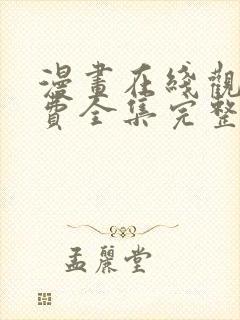 漫畫在綫觀
費全集完整
孟麗堂